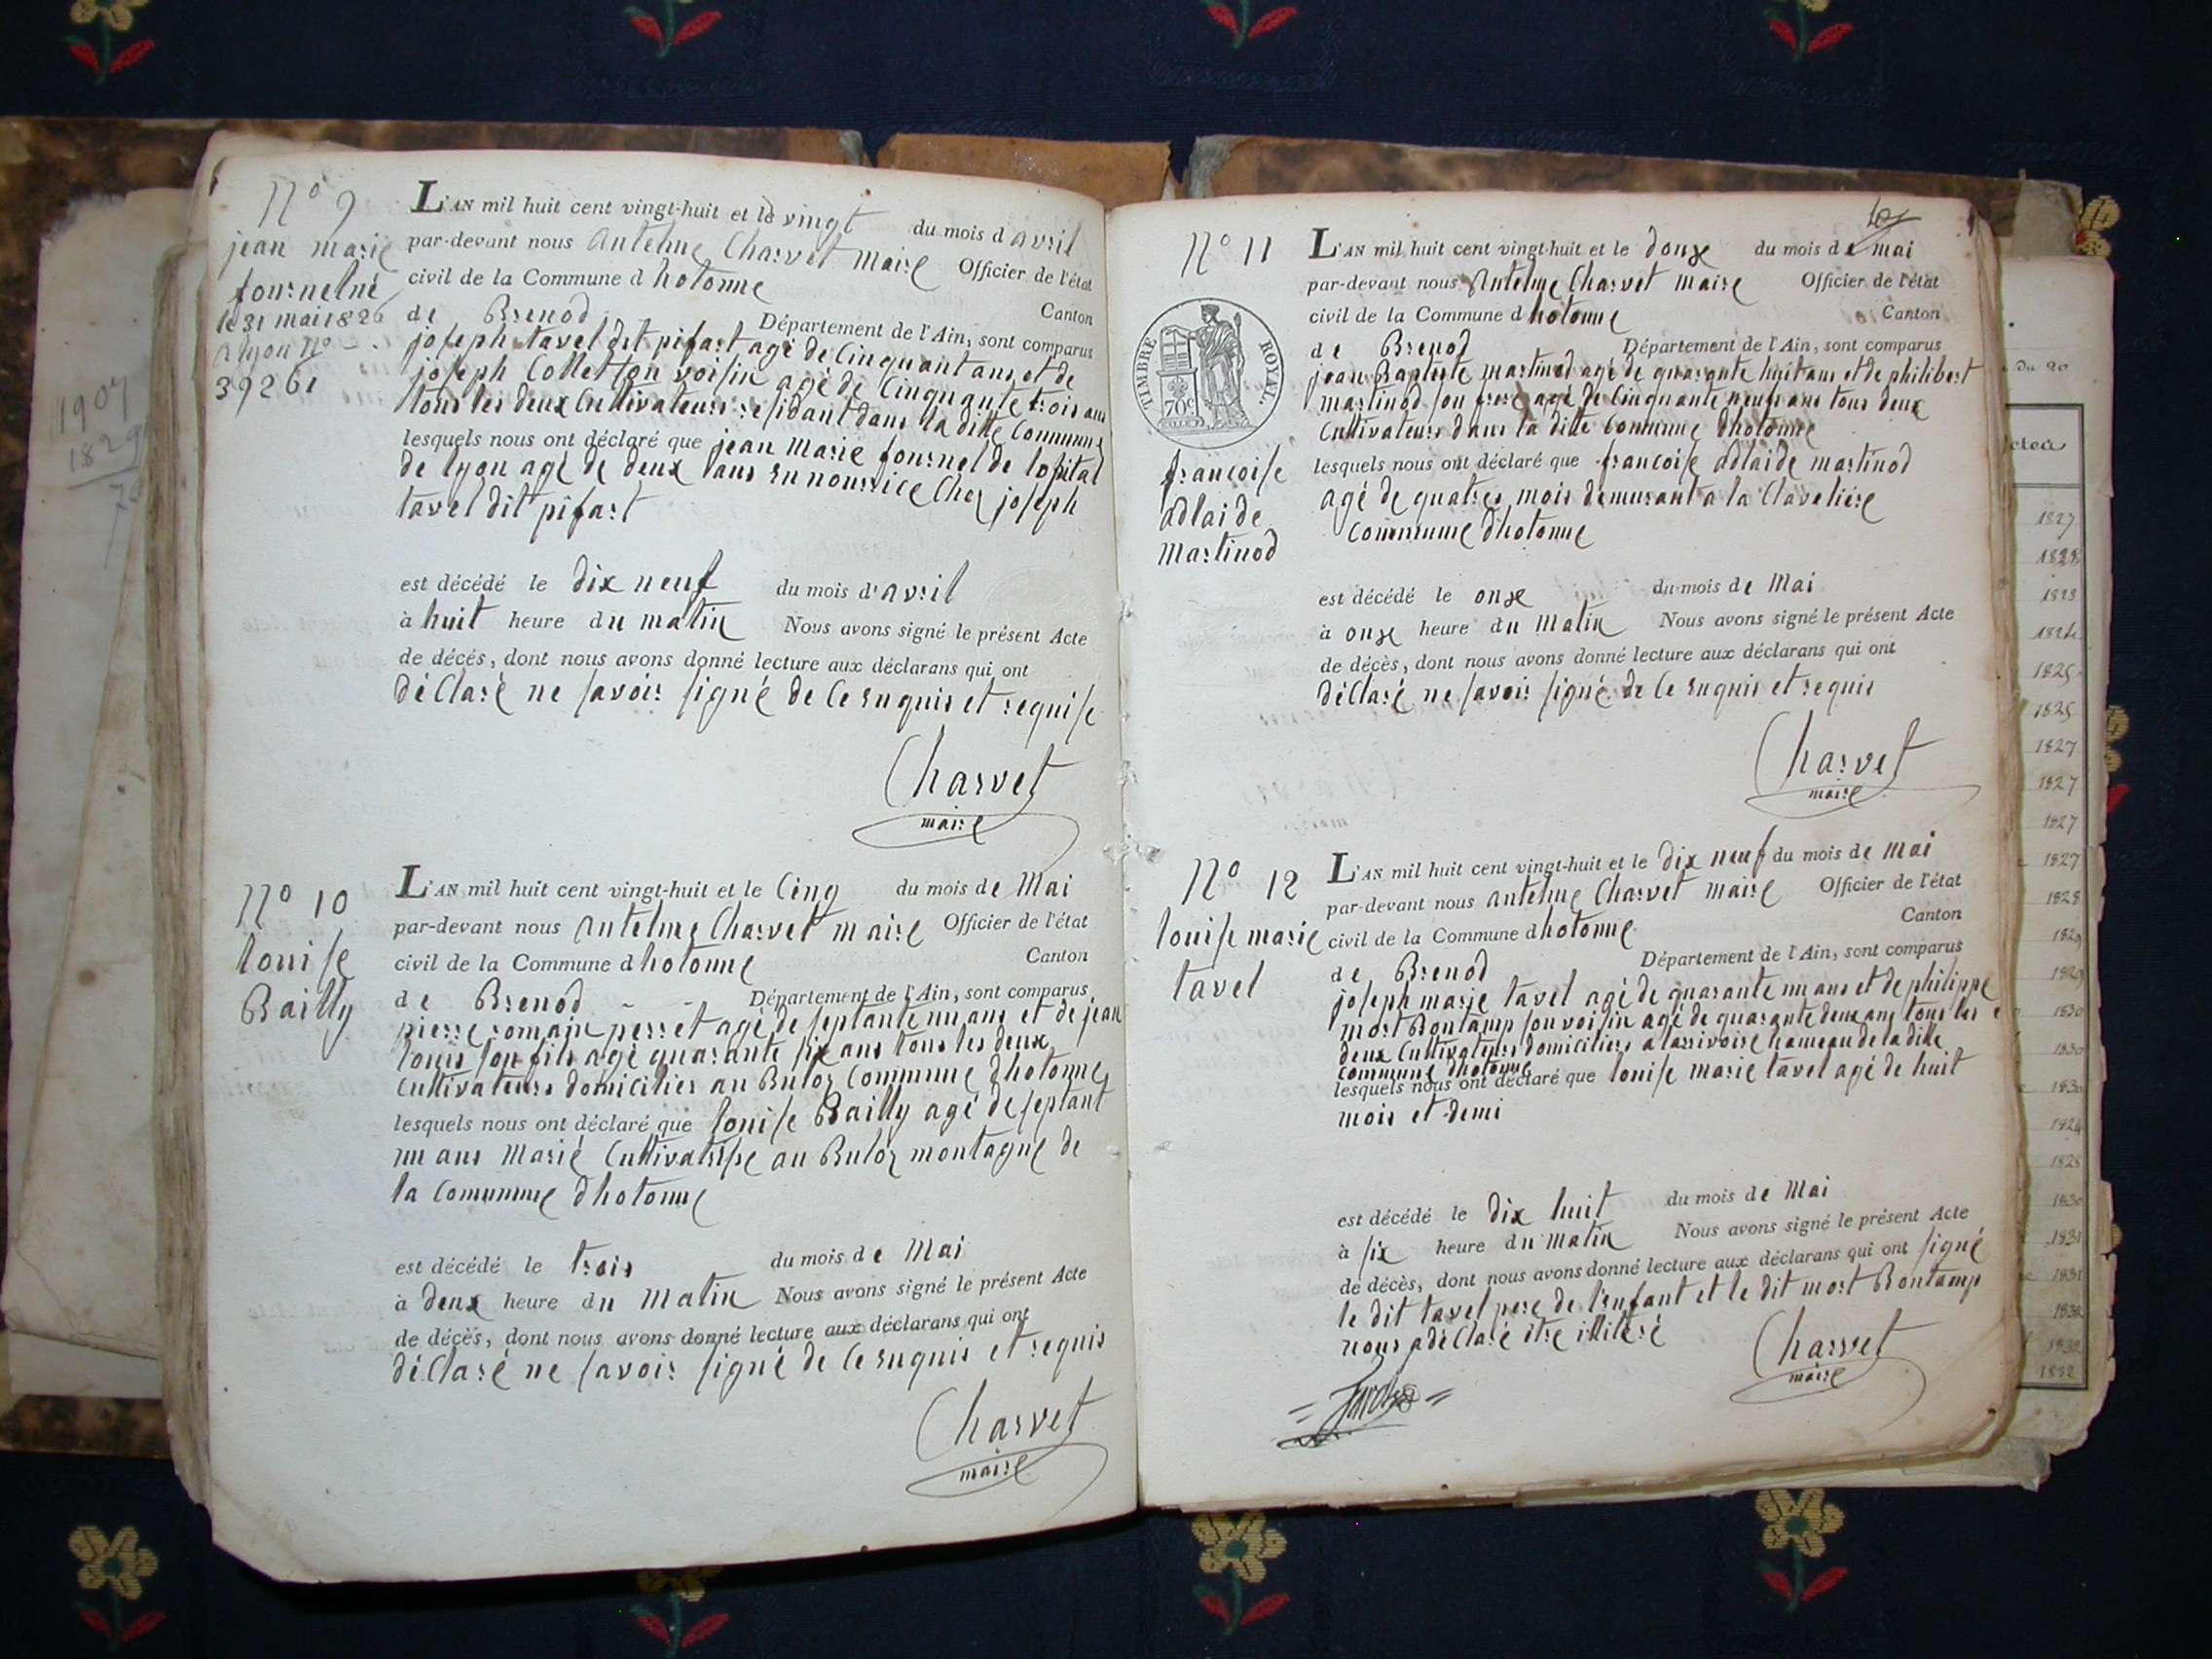 1907
1829
N° 9
jean marie
fournel né
le 31 mai 1826
a lyon n°
39261
L'AN mil huit cent vingt-huit et le vingt du mois d'avril
par-devant nous Antelme Charvet maire Officier de l'état
civil de la Commune d hotonne Canton
de Brenod Département de l'Ain, sont comparus
joseph tavel dit pifart agé de Cinquant ans et de
joseph Collet son voisin agé de Cinquante trois ans
tous les deux Cultivateurs residant dans la ditte Commune
lesquels nous ont déclaré que jean Marie fournel de lopital
de lyon agé de deux ans en nourrice Chez joseph
tavel dit pifart
est décédé le dix neuf du mois d'avril
à huit heure du matin Nous avons signé le présent Acte
de décès, dont nous avons donné lecture aux déclarans qui ont
déClaré ne savoir signé de Ce enquis et requise
Charvet
maire
N° 10
louise
Bailly
L'AN mil huit cent vingt-huit et le Cinq du mois de Mai
par-devant nous Antelme Charvet maire Officier de l'état
civil de la Commune d hotonne Canton
de Brenod - - Département de l'Ain, sont comparus
pierre romain perret agé de septante un ans et de jean
louis son fils agé quarante six ans tous les deux
Cultivateurs domicilier au Buloz Commune dhotonne
lesquels nous ont déclaré que louise Bailly agé de septant
un ans Marié Cultivatrise au Buloz montagne de
la Commune dhotonne
est décédé le trois du mois de Mai
à deux heure du Matin Nous avons signé le présent Acte
de décès, dont nous avons donné lecture aux déclarans qui ont
déClaré ne savoir signé de Ce enquis et requis
Charvet
maire
N° 11
TIMBRE ROYAL.
70c
françoise
adlaide
Martinod
L'AN mil huit cent vingt-huit et le douze du mois de mai
par-devant nous Antelme Charvet maire Officier de l'état
civil de la Commune d hotonne Canton
de Brenod Département de l'Ain, sont comparus
jean Baptiste martinod agé de quarante huit ans et de philibert
martinod son frere agé de Cinquante neuf ans tous deux
Cultivateurs dans la ditte Commune dhotonne
lesquels nous ont déclaré que francoise adlaide martinod
agé de quatres mois demurant a la Claveliére
Commune dhotonne
est décédé le onze du mois de Mai
à onze heure du Matin Nous avons signé le présent Acte
de décès, dont nous avons donné lecture aux déclarans qui ont
déClaré ne savoir signé de Ce enquis et requis
Charvet
maire
N° 12
louise marie
tavel
L'AN mil huit cent vingt-huit et le dix neuf du mois de Mai
par-devant nous antelme Charvet maire Officier de l'état
civil de la Commune d hotonne Canton
de Brenod Département de l'Ain, sont comparus
joseph marie tavel agé de quarante un ans et de philippe
mort Bontamp son voisin agé de quarante deux ans tous les
deux Cultivateurs domiciliers a larrivoire hameau de la ditte
Commune dhotonne
lesquels nous ont déclaré que louise marie tavel agé de huit
mois et demi
est décédé le dix huit du mois de Mai
à six heure du matin Nous avons signé le présent Acte
de décès, dont nous avons donné lecture aux déclarans qui ont signé
le dit tavel pere de l'enfant et le dit mort Bontamp
nous a déClaré être illitéré
Charvet
maire
du 20
1827
1828
1823
1824
1825
1825
1827
1827
1827
1827
1828
1829
1829
1830
1830
1830
1824
1828
1830
1831
1831
1832
1832
1832